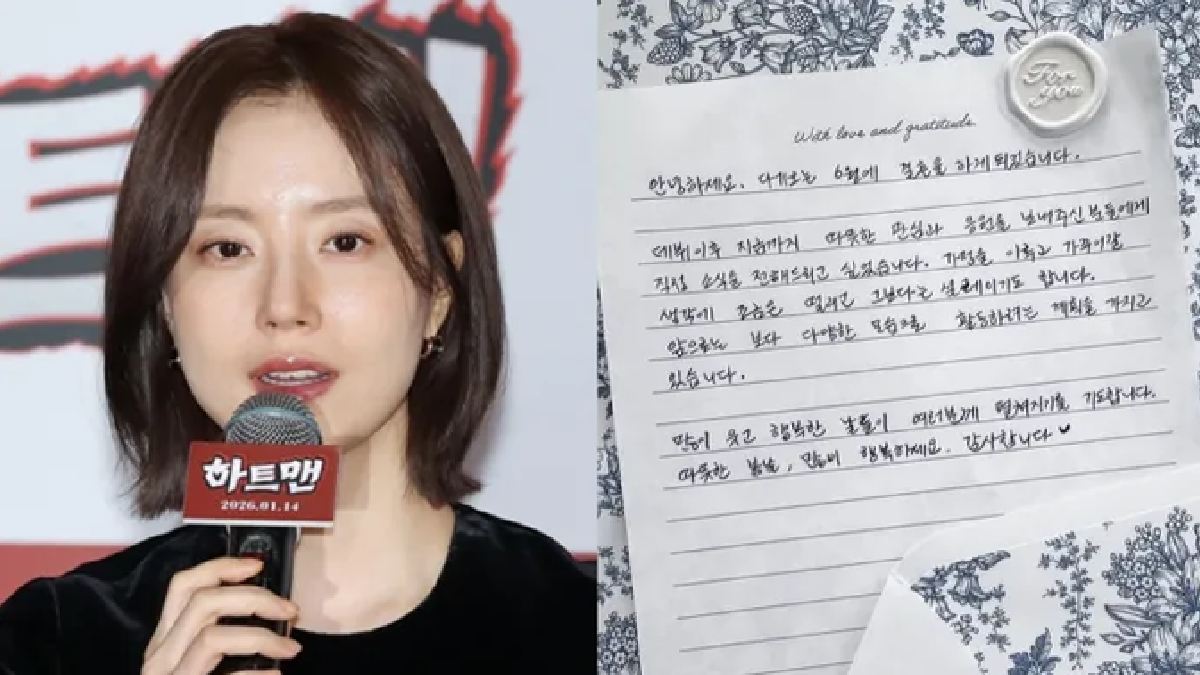 하트맨
2026.01.14
For you
With love and gratitude
안녕하세요. 다가오는 6월에 결혼을 하게 되었습니다.
데뷔이후 지금까지 따뜻한 관심과 응원을 보내주신 분들에게
직접 소식을 전해드리고 싶었습니다. 가정을 이루고 가족이갈
생각에 조금은 떨리고 그보다는 설레이기도 합니다.
앞으로는 보다 다양한 모습으로 활동하려는 계획을 가지고
있습니다.
많이 웃고 행복한 날들이 여러분께 펼쳐지기를 기도합니다.
따뜻한 봄날, 많이 행복하세요. 감사합니다